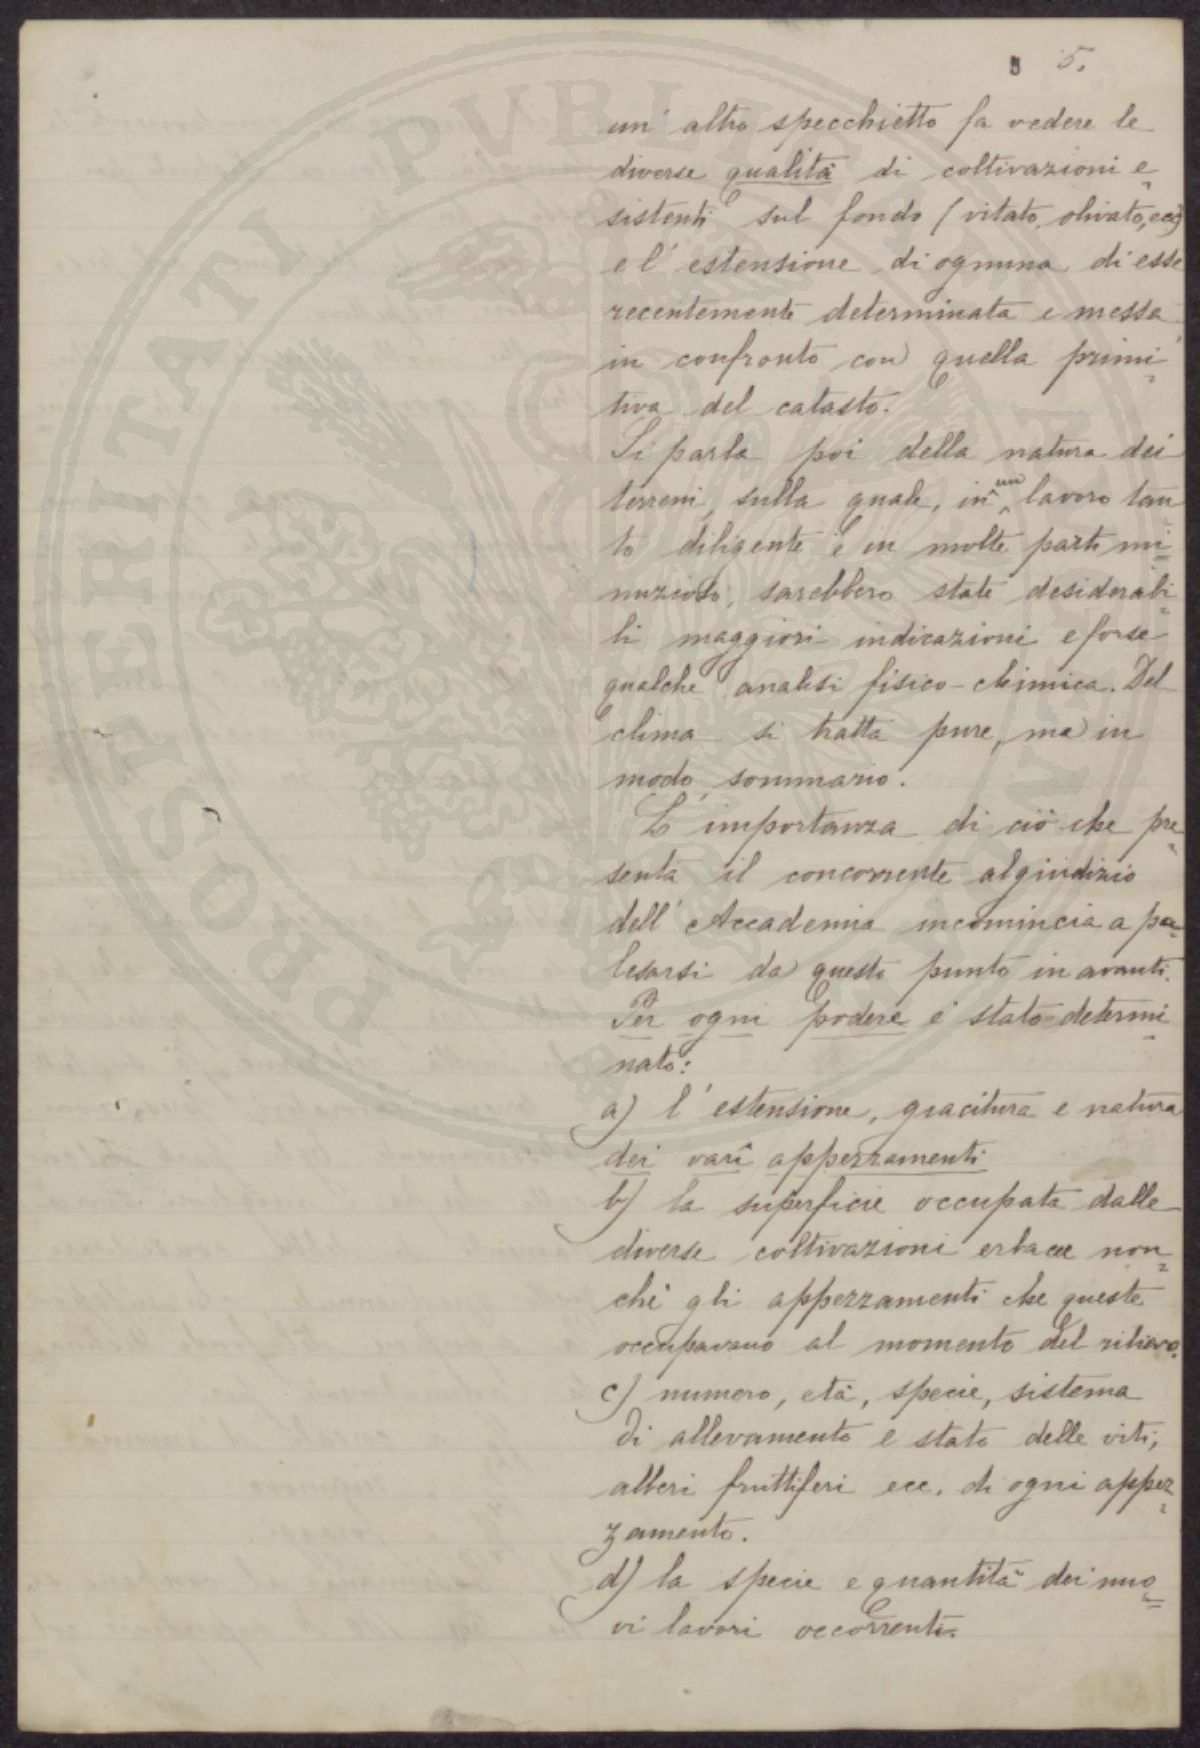 5.
un' altro specchietto fa vedere le
diverse qualità di coltivazioni e=
sistenti sul fondo (vitato, olivato, ecc)
e l' estensione di ognuna di esse
recentemente determinata e messa
in confronto con quella primi=
tiva del catasto.
Si parla poi della natura dei
terreni, sulla quale, in un lavoro tan=
to diligente e in molte parti mi=
nuzioso, sarebbero state desiderabi=
li maggiori indicazioni e forse
qualche analisi fisico-chimica. Del
clima si tratta pure, ma in
modo sommario.
L' importanza di ciò che pre=
senta il concorrente al giudizio
dell' Accademia incomincia a pa=
lesarsi da questo punto in avanti.
Per ogni podere è stato determi=
nato:
a) l' estensione, giacitura e natura
dei varî appezzamenti
b) la superficie occupata dalle
diverse coltivazioni erbacee non=
chè gli appezzamenti che queste
occupavano al momento del rilievo.
c) numero, età, specie, sistema
di allevamento e stato delle viti,
alberi fruttiferi ecc. di ogni appez=
zamento.
d) la specie e quantità dei nuo=
vi lavori occorrenti.
PROSPERITATI PVBLICAE